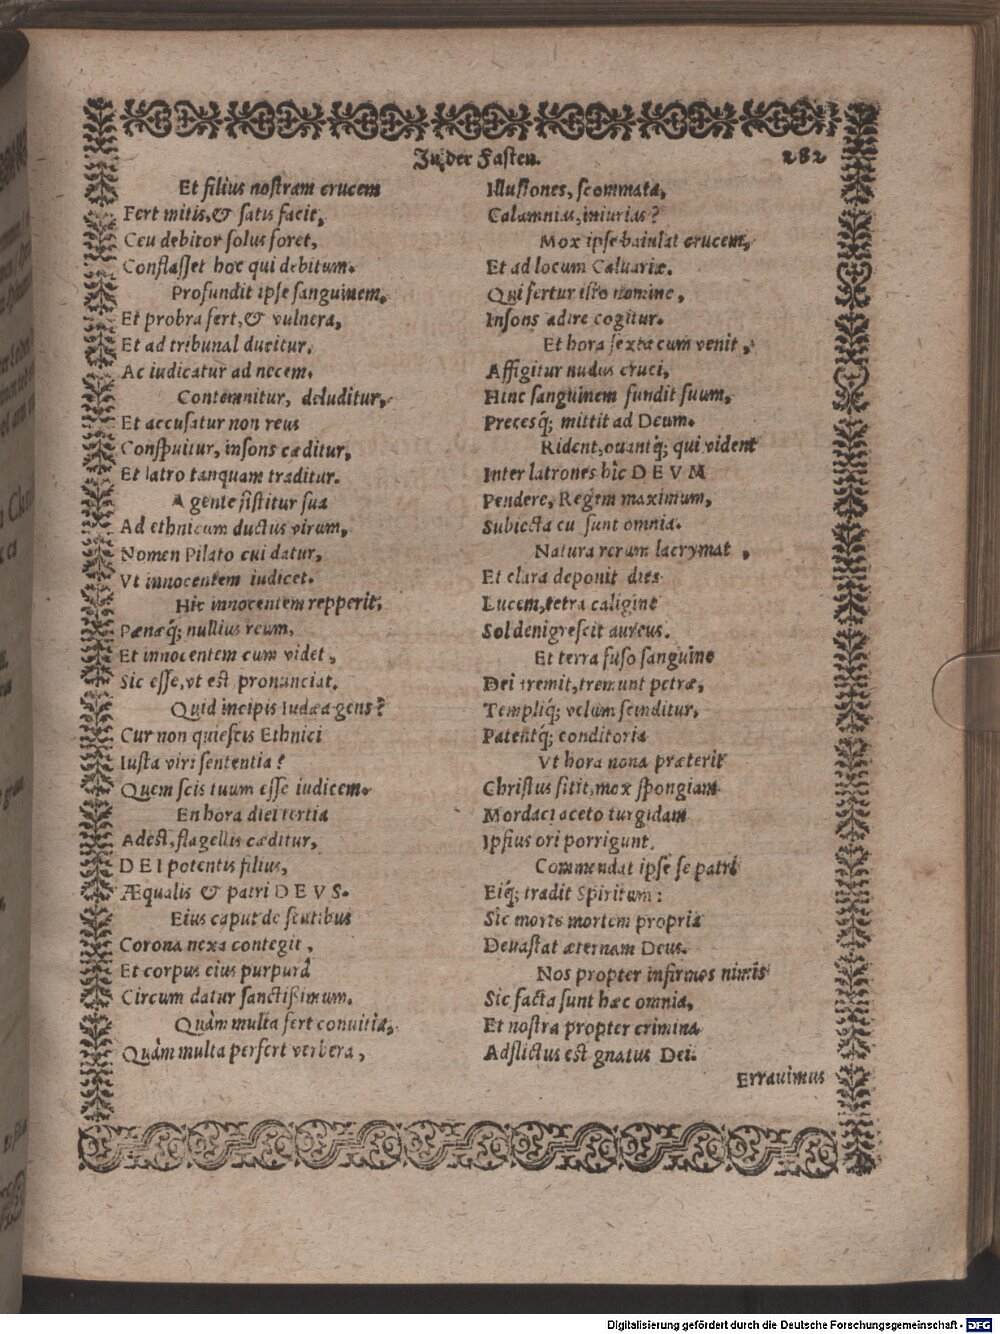 In der Fasten.
282
Et filius nostram crucem
Fert mitis, & satis facit,
Ceu debitor solus foret,
Conflasset hoc qui debitum.
Profundit ipse sanguinem,
Et probra fert, & vulnera,
Et ad tribunal ducitur,
Ac iudicatur ad necem.
Contemnitur, deluditur,
Et accusatur non reus
Conspuitur, insons cæditur,
Et latro tanquam traditur.
A gente sistitur sua
Ad ethnicum ductus virum,
Nomen Pilato cui datur,
Vt innocentem iudicet.
Hic innocentem repperit,
Pænæq́; nullius reum,
Et innocentem cum videt,
Sic esse, vt est pronunciat.
Quid incipis Iudæa gens?
Cur non quiescis Ethnici
Iusta viri sententia?
Quem scis tuum esse iudicem.
En hora diei tertia
Adest, flagellis cæditur,
DEI potentis filius,
Æqualis & patri DEVS.
Eius caput de sentibus
Corona nexa contegit,
Et corpus eius purpurâ
Circum datur sanctißimum.
Quàm multa fert conuitia,
Quàm multa perfert verbera,
Illusiones, scommata,
Calumnias, iniurias?
Mox ipse baiulat crucem,
Et ad locum Caluariæ.
Qui fertur isto nomine,
Insons adire cogitur.
Et hora sexta cum venit,
Affigitur nudus cruci,
Hinc sanguinem fundit suum,
Precesq́; mittit ad Deum.
Rident, ouantq́; qui vident
Inter latrones hîc DEVM
Pendere, Regem maximum,
Subiecta cu sunt omnia.
Natura rerum lacrymat,
Et clara deponit dies
Lucem, tetra caligine
Sol denigrescit aureus.
Et terra fuso sanguine
Dei tremit, tremunt petræ,
Templiq́; velum scinditur,
Patentq́; conditoria
Vt hora nona præterit
Christus sitit, mox spongiam
Mordaci aceto turgidam
Ipsius ori porrigunt.
Commendat ipse se patri
Eiq́; tradit Spiritum:
Sic morte mortem propria
Deuastat æternam Deus.
Nos propter infirmos nimis
Sic facta sunt hæc omnia,
Et nostra propter crimina
Adflictus est gnatus Dei.
Errauimus
Digitalisierung gefördert durch die Deutsche Forschungsgemeinschaft - DFG